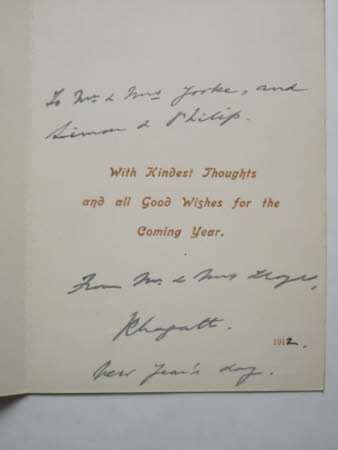 To Mr. & Mrs Yorke, and
Simon & Philip.
With Kindest Thoughts
and all Good Wishes for the
Coming Year.
From Mr. & Mrs
1912.
New Year's day.